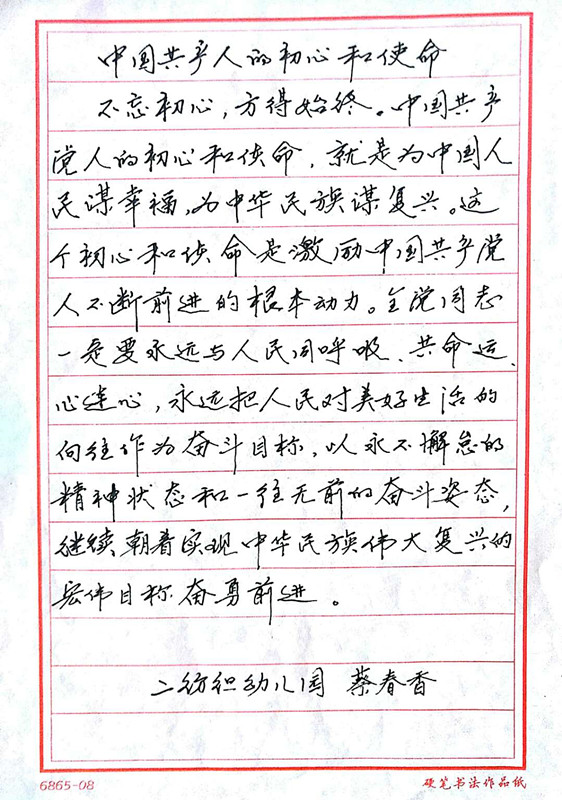 中国共产人的初心和使命
不忘初心，方得始终。中国共产
党人的初心和使命，就是为中国人
民谋幸福，为中华民族谋复兴。这
个初心和使命是激励中国共产党
人不断前进的根本动力。全党同志
一是要永远与人民同呼吸、共命运、
心连心，永远把人民对美好生活的
向往作为奋斗目标，以永不懈怠的
精神状态和一往无前的奋斗姿态，
继续朝着实现中华民族伟大复兴的
宏伟目标奋勇前进。
二纺织幼儿园 蔡春香
6865-08 硬笔书法作品纸